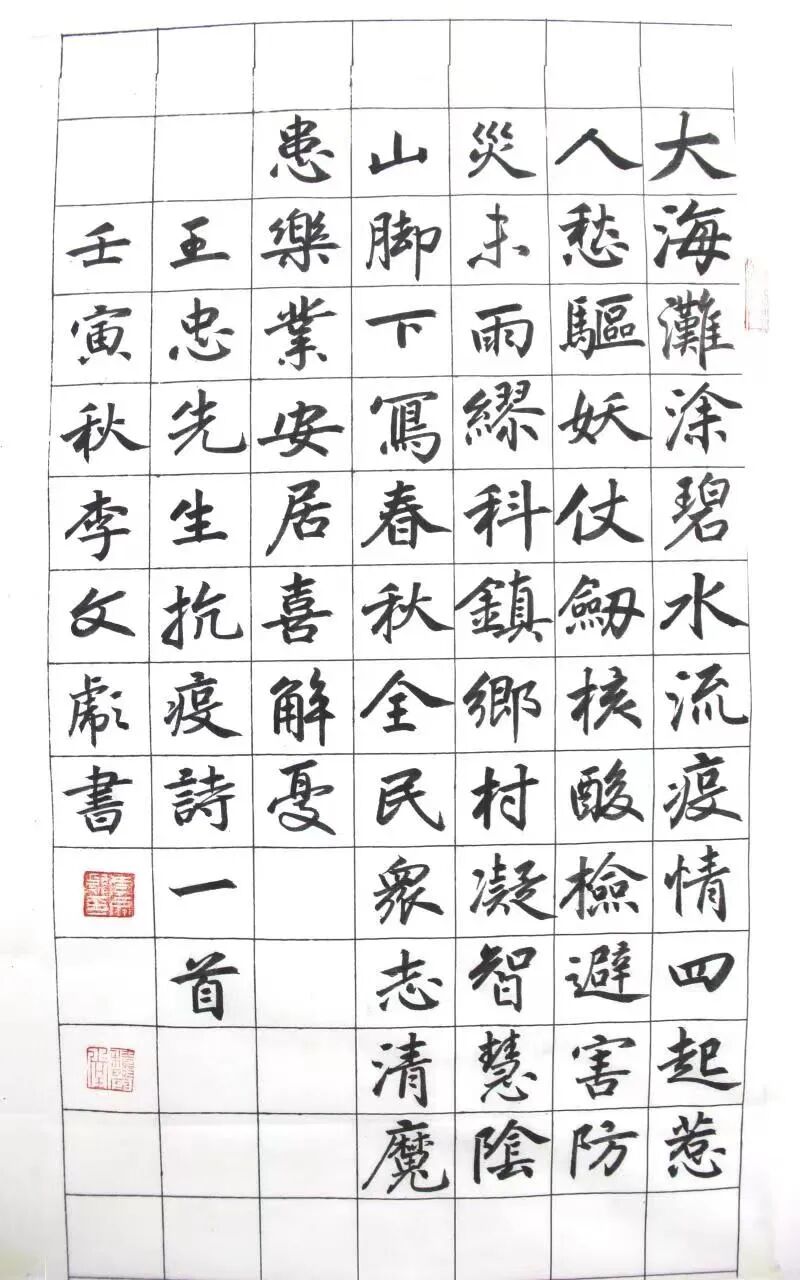 大海灘涂碧水流疫情四起惹
人愁驅妖仗劔核酸檢避害防
災未雨繆科鎮鄉村凝智慧陰
山脚下寫春秋全民衆志清魔
患樂業安居喜解憂
王忠先生抗疫詩一首
壬寅秋李文獻書